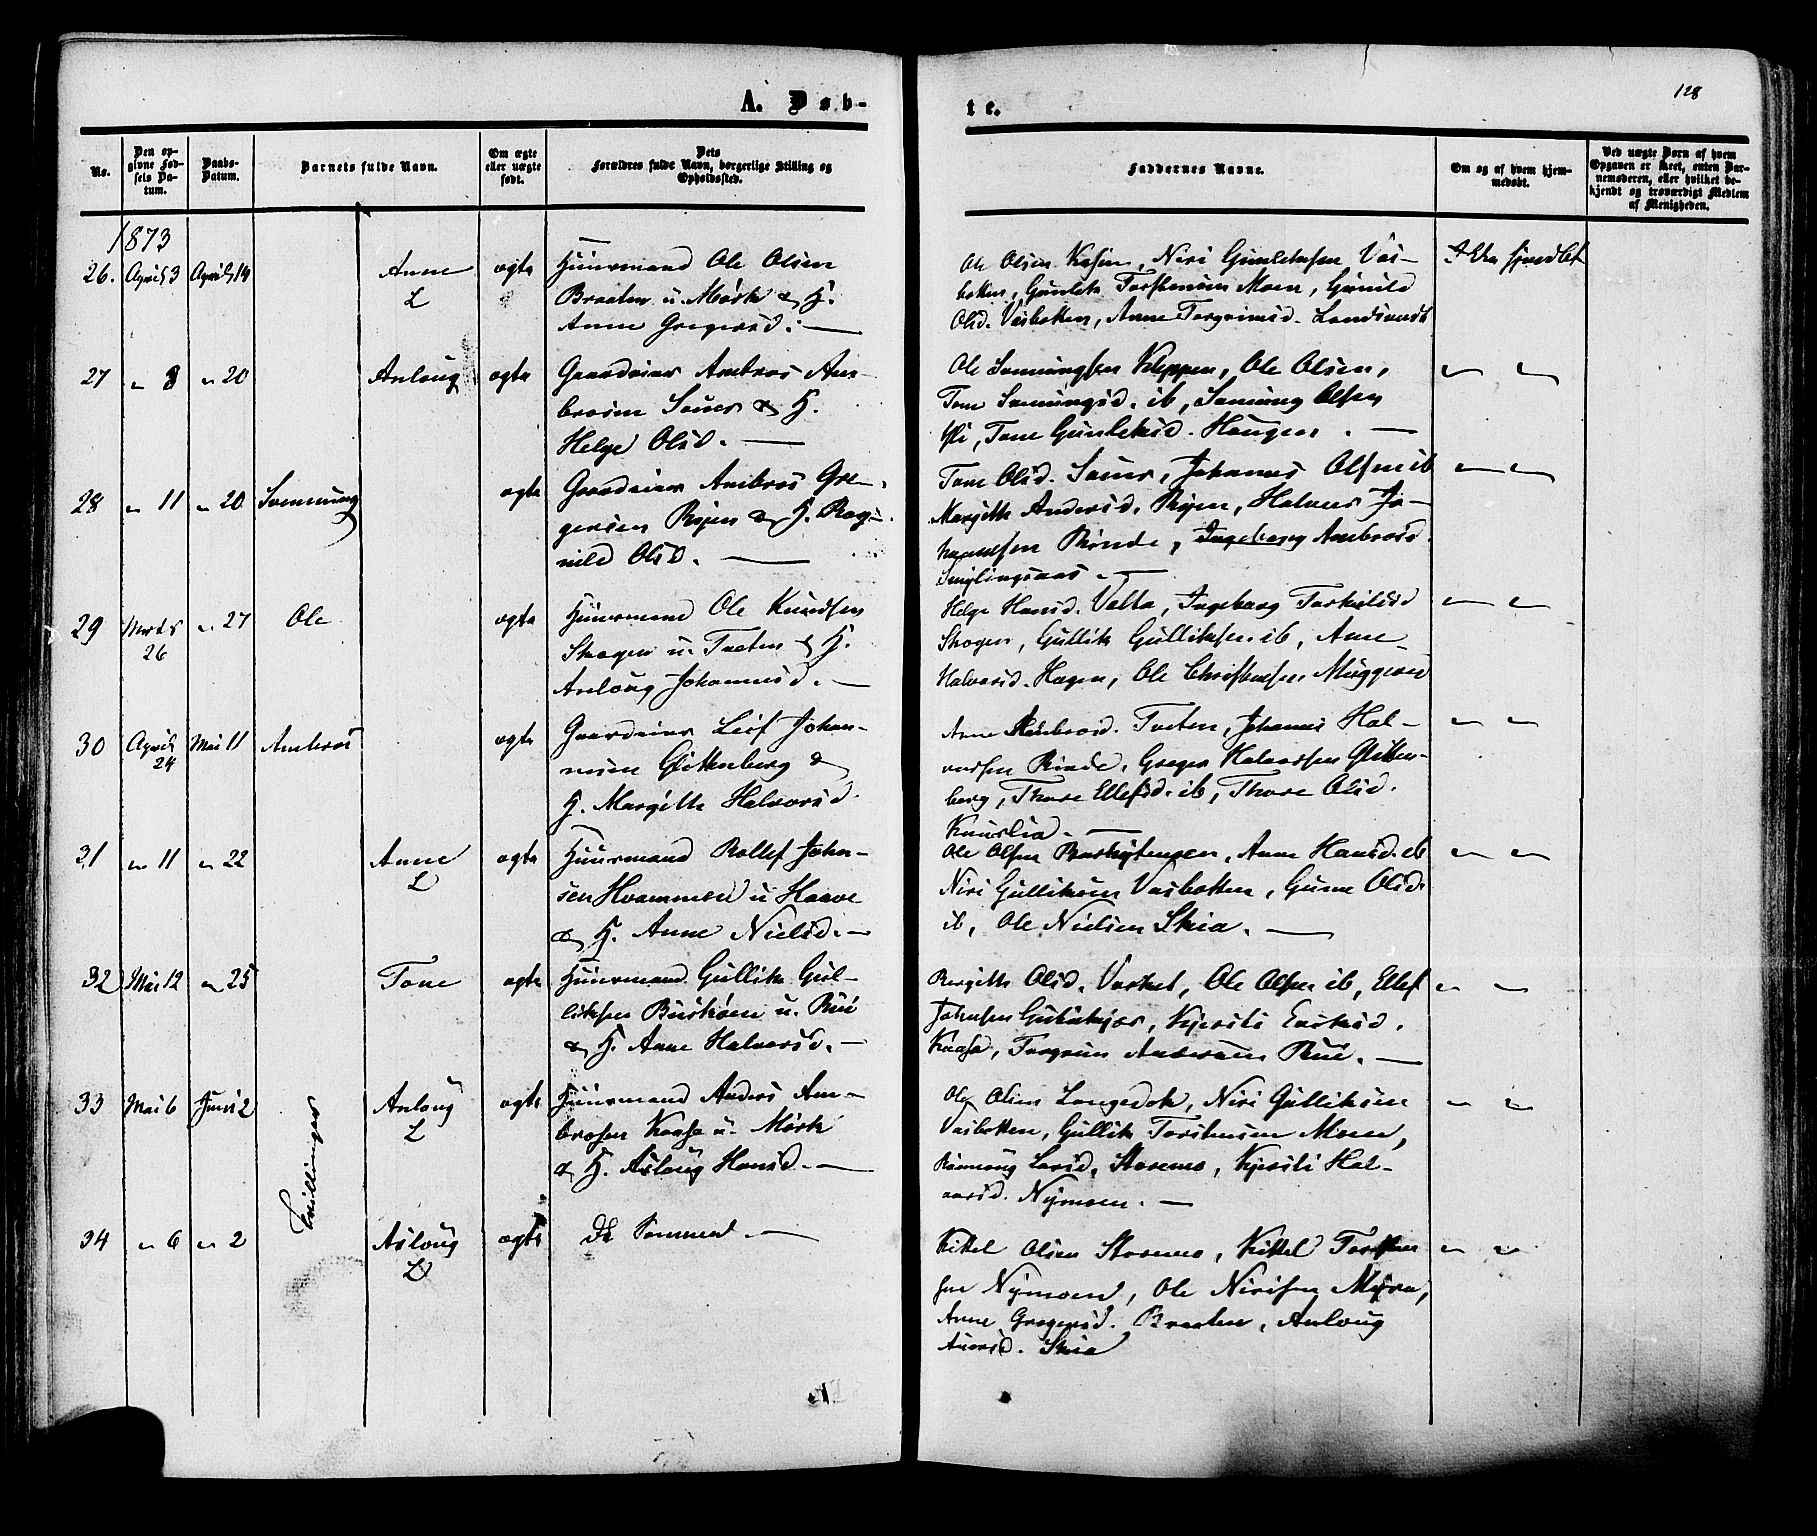 128
A. Døb-
te.
No.
Den op-
givne Fød-
sels Da-
tum.
Daabs-
Datum.
Barnets fulde Navn.
Om ægte
eller uægte
født.
Dets
Forældres fulde Navn, borgerlige Stilling og
Opholdssted.
Faddernes Navne.
Om og af hvem hjem-
medøbt.
Ved uægte Børn af hvem
Opgaven er skeet, enten Bar-
nemoderen, eller hvilket be-
kjendt og troværdigt Medlem
af Menigheden.
1873
26. April 3 April 14 Anne
L
ægte
Huusmand Ole Olsen
Braaten u. Mørk & H.
Anne Gregersd. —
Ole Olsen Kasin, Niri Gunleiksen Vas-
botten, Gunleik Torstensen Moen, Gunild
Olsd. Vasbotten, Anne Torgrimsd.
Ikke hjemdbt
27 " 8 " 20 Anloug ægte
Gaardeier Ambros Am-
brosen Sauer & H.
Helge Olsd. —
Ole Svenungsen Kleppen, Ole Olsen,
Tone Svenungsd. ib, Svenung Olsen
Tone Gunleiksd. Haugen. —
" "
28 " 11 " 20 Svennung ægte
Gaardeier Ambros Gre-
gersen Ryen & H. Rag-
nild Olsd. —
Tone Olsd. Sauer, Johannes Olsen ib
Margith Andersd. Ryen, Halvor Jo-
hannesen Rinde, Ingeborg Ambrosd.
" "
29 Marts
26
" 27 Ole ægte
Huusmand Ole Knudsen
Skogen u. Tveten & H.
Anloug Johannesd. —
Helge Hansd. Valta, Ingeborg Torkildsd
Skogen, Gullik Gulliksen ib, Anne
Halvorsd. Hagen, Ole Christensen
" "
30 April
24
Mai 11 Ambros ægte
Gaardeier Leif Johan-
nesen Glittenberg &
H. Margith Halvorsd.
Anne Ambrosd. Tveten, Johannes Hal-
vorsen Rinde, Greger Halvorsen Glitten-
berg, Thore Ellefsd. ib, Thore Olsd.
Knuslia. —
" "
31 " 11 " 22 Anne
L
ægte
Huusmand Rollef John-
sen Hvammen u Haave
& H. Anne Nielsd. —
Ole Olsen Anne Hansd. ib
Niri Gulliksen Vasbotten, Gunne Olsd.
ib, Ole Nielsen Skia. —
" "
32 Mai 12 " 25 Tone ægte
Huusmand Gullik Gul-
liksen Buskøen u. Rui
& H. Anne Halvorsd. —
Bergith Olsd. Ole Olsen ib, Ellef
Johnsen Kjersti
Kaasa, Torgrim Andersen Rui. —
" "
33 Mai 6 Juni 2
Tvillinger
Anloug
L
ægte
Huusmand Anders Am-
brosen Kaasa u. Mørk
& H. Asloug Hansd. —
Ole Olsen Langedok, Niri Gulliksen
Vasbotten, Gullik Torstensen Moen,
Rønnoug Larsd. Storemo, Kjersti Hal-
vorsd. Nymoen. —
" "
34 " 6 " 2 Asloug
L
ægte
De Samme —
Kittel Olsen Storemo, Kittel Torsten-
sen Nymoen, Ole Nirisen Myra,
Anne Gregersd. Braaten, Anloug
Skia
" "